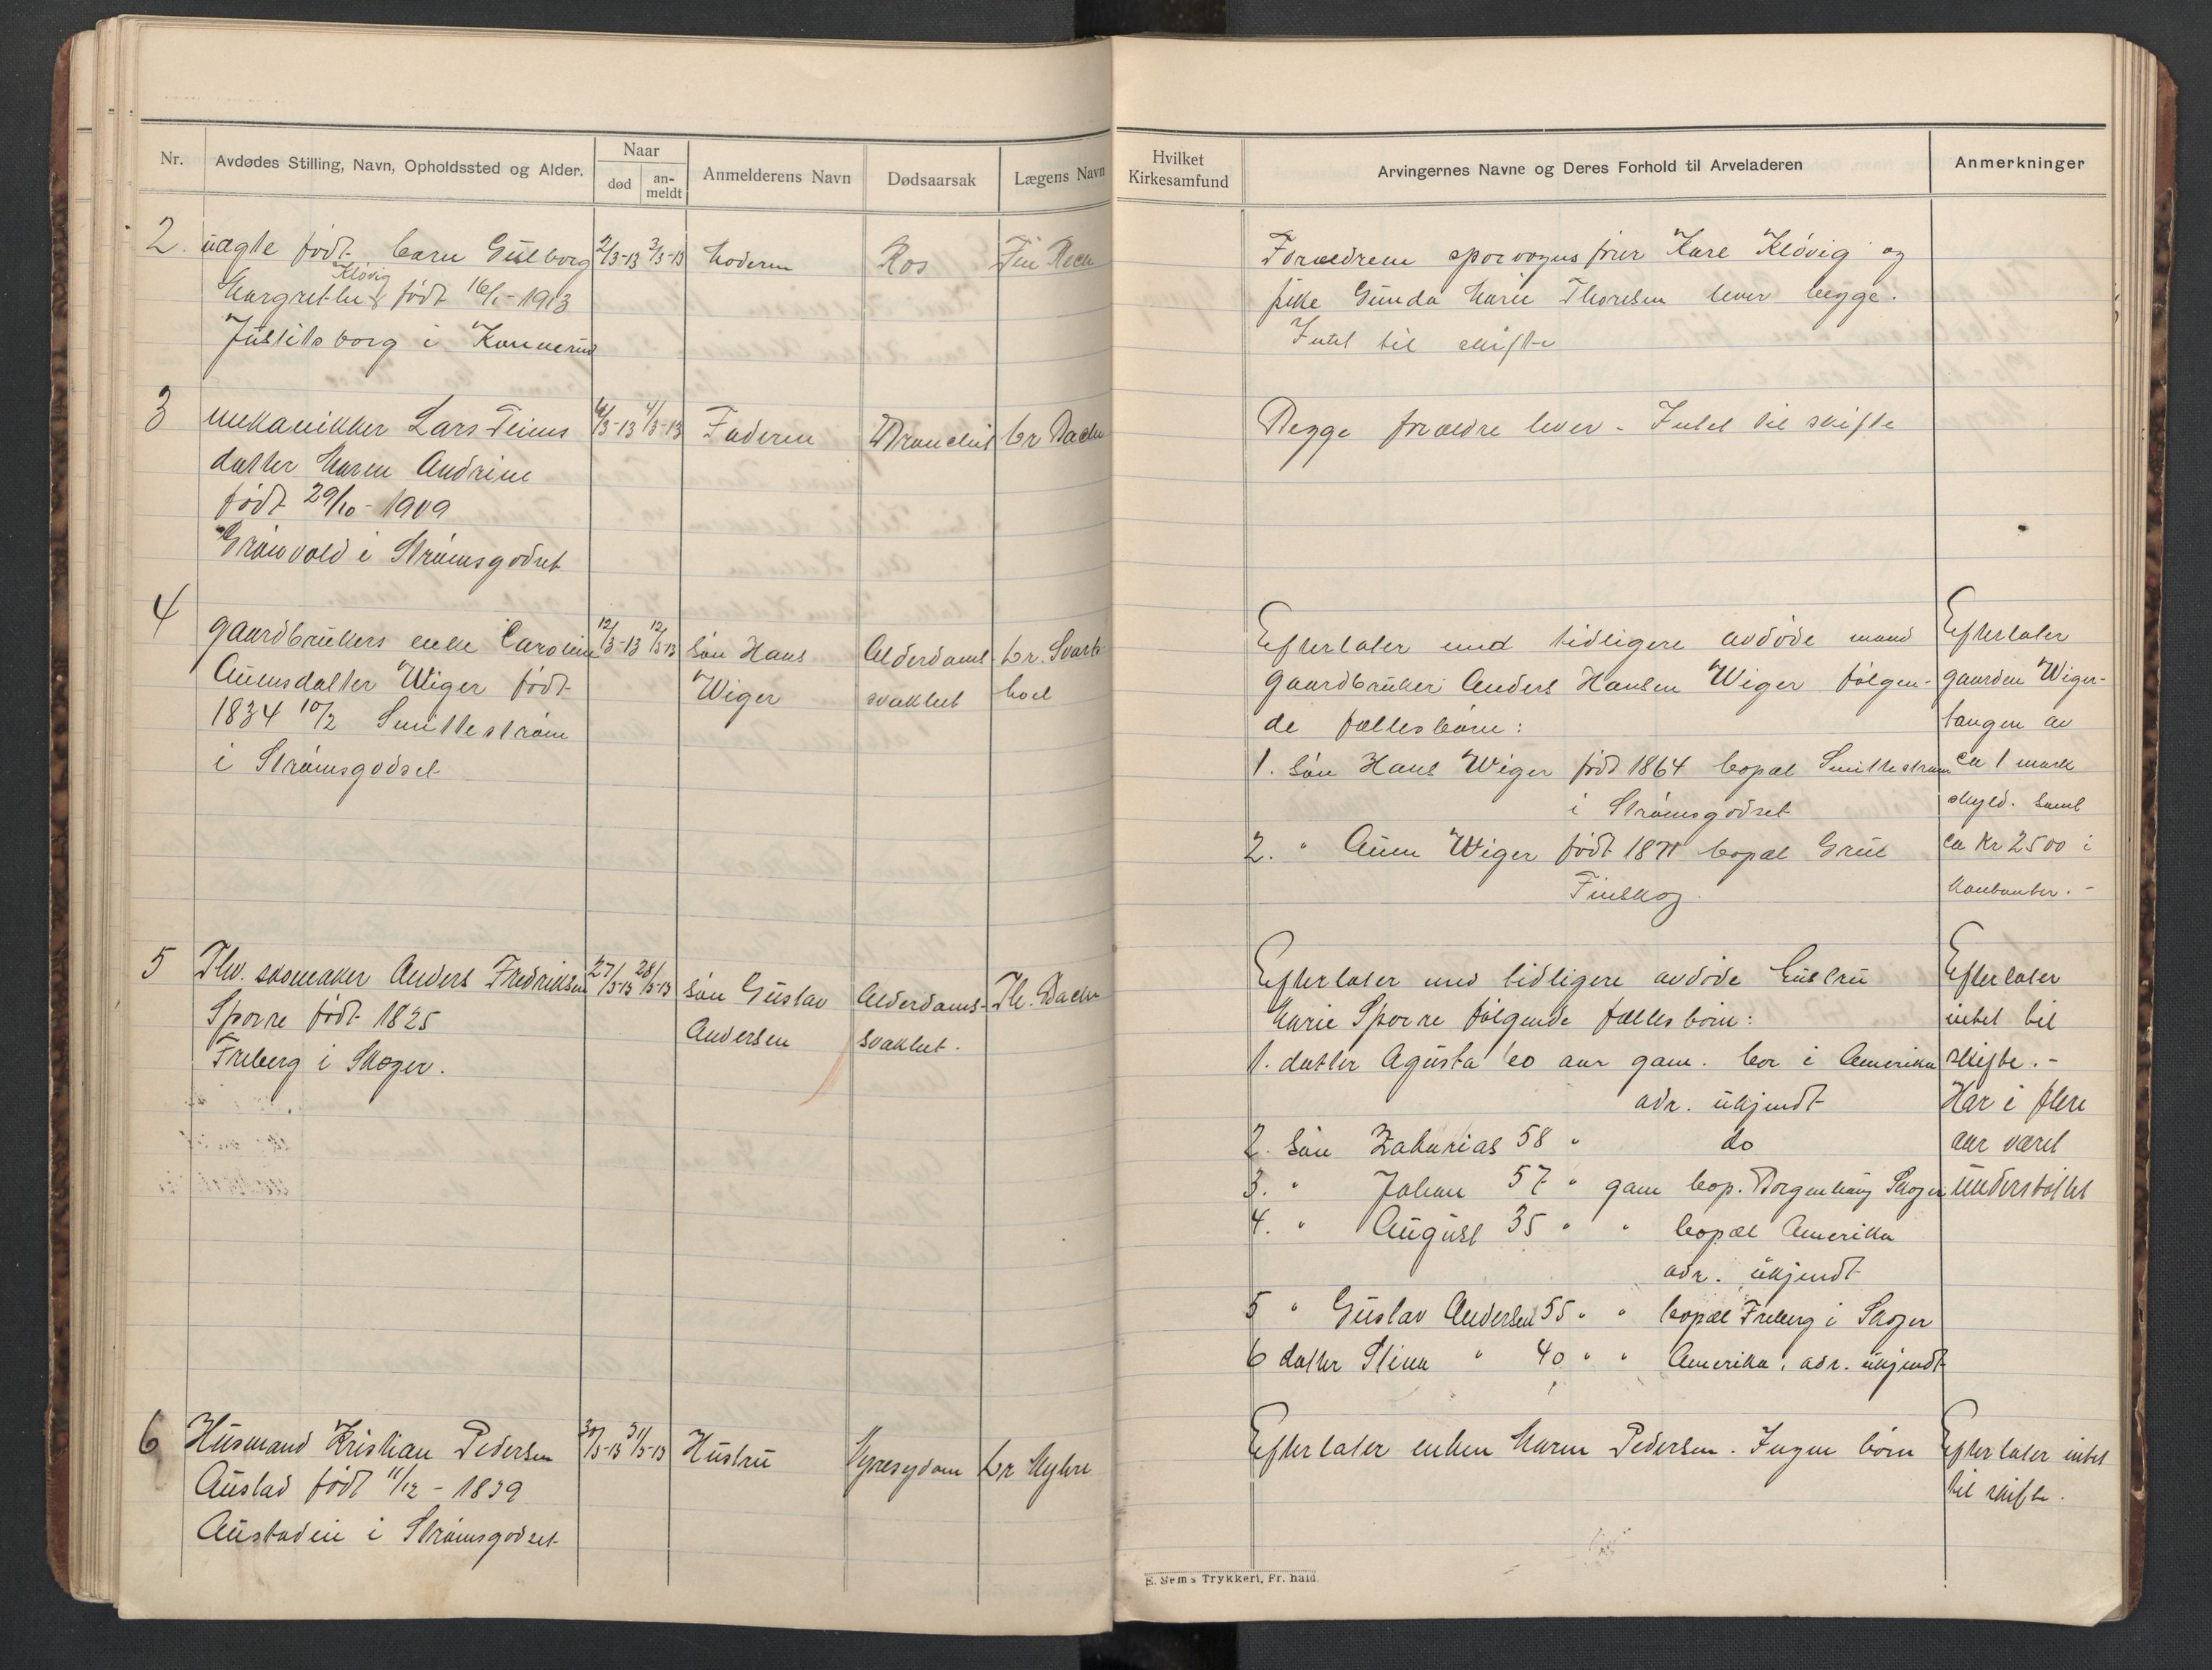 Nr.
Avdødes Stilling, Navn, Opholdssted og Alder.
Naar
død
an-
meldt
Anmelderens Navn
Dødsaarsak
Lægens Navn
Hvilket
Kirkesamfund
Arvingernes Navne og Deres Forhold til Arveladeren
Anmerkninger
2. uægte født barn Gulborg 2/3-13 3/3-13 Moderen
Kløvig
Margrethe født 16/1-1913
i Konnerud
Forældrene sporvogns fører Kare Kløvig og
pike Gunda Marie Thoresen lever begge.
Intet til skifte
3 mekanikker Lars
datter Maren Andrine
født 29/10-1909
Grønvold i Strømsgodset
4/3-13 Faderen Dr Bache
Begge forældre lever - Intet til skifte
4
gaardbrukers enke Caroline 12/3-13 12/3-13 Søn Hans Alderdoms- Dr. Svarte-
Auensdatter Wiger født Wiger svakhet
1834 10/2 Smithestrøm
i Strømsgodset
Efterlater med tidligere avdøde mand
gaardbruker Anders Hansen Wiger følgen-
de fællesbørn:
1. Søn Hans Wiger født 1864 bopæl Smithestrøm
i Strømsgodset
2. " Auen Wiger født 1871 bopæl Grue
Finskog.
Efterlater
gaarden Wiger-
tangen av
ca 1 mark
skyld. Samt
ca Kr 2500 i
kontanter. -
5 Fhv. skomaker Anders Fredriksen 27/3-13 28/3-13 Søn Gustav Alderdoms- Th. Bache
Sporre født 1825 Andersen svakhet.
Freberg i Skoger.
Efterlater med tidligere avdøde hustru
Marie Sporre følgende fælles børn:
1. datter Agusta 60 aar gam. bor i Amerika
adr. ukjendt
2. Søn Zakarias 58 " do
3. " Johan 57 " gam bop. Skoger
4. " August 35 " " bopæl Amerika
adr. ukjendt
5 " Gustav Andersen 55 " " bopæl Freberg i Skoger
6 datter Stina " 40 " " Amerika, adr. ukjendt
Efterlater
intet til
skifte. -
Har i flere
aar været
understøttet
6 Husmand Kristian Pedersen 30/3-13 31/3-13 Hustru Nyresygdom Dr Myhre
Austad født 11/12 - 1839
Austadeie i Strømsgodset
Efterlater enken Maren Pedersen. Ingen børn
Efterlater intet
til skifte.
E. Sem's Trykkeri, Fr. hald.